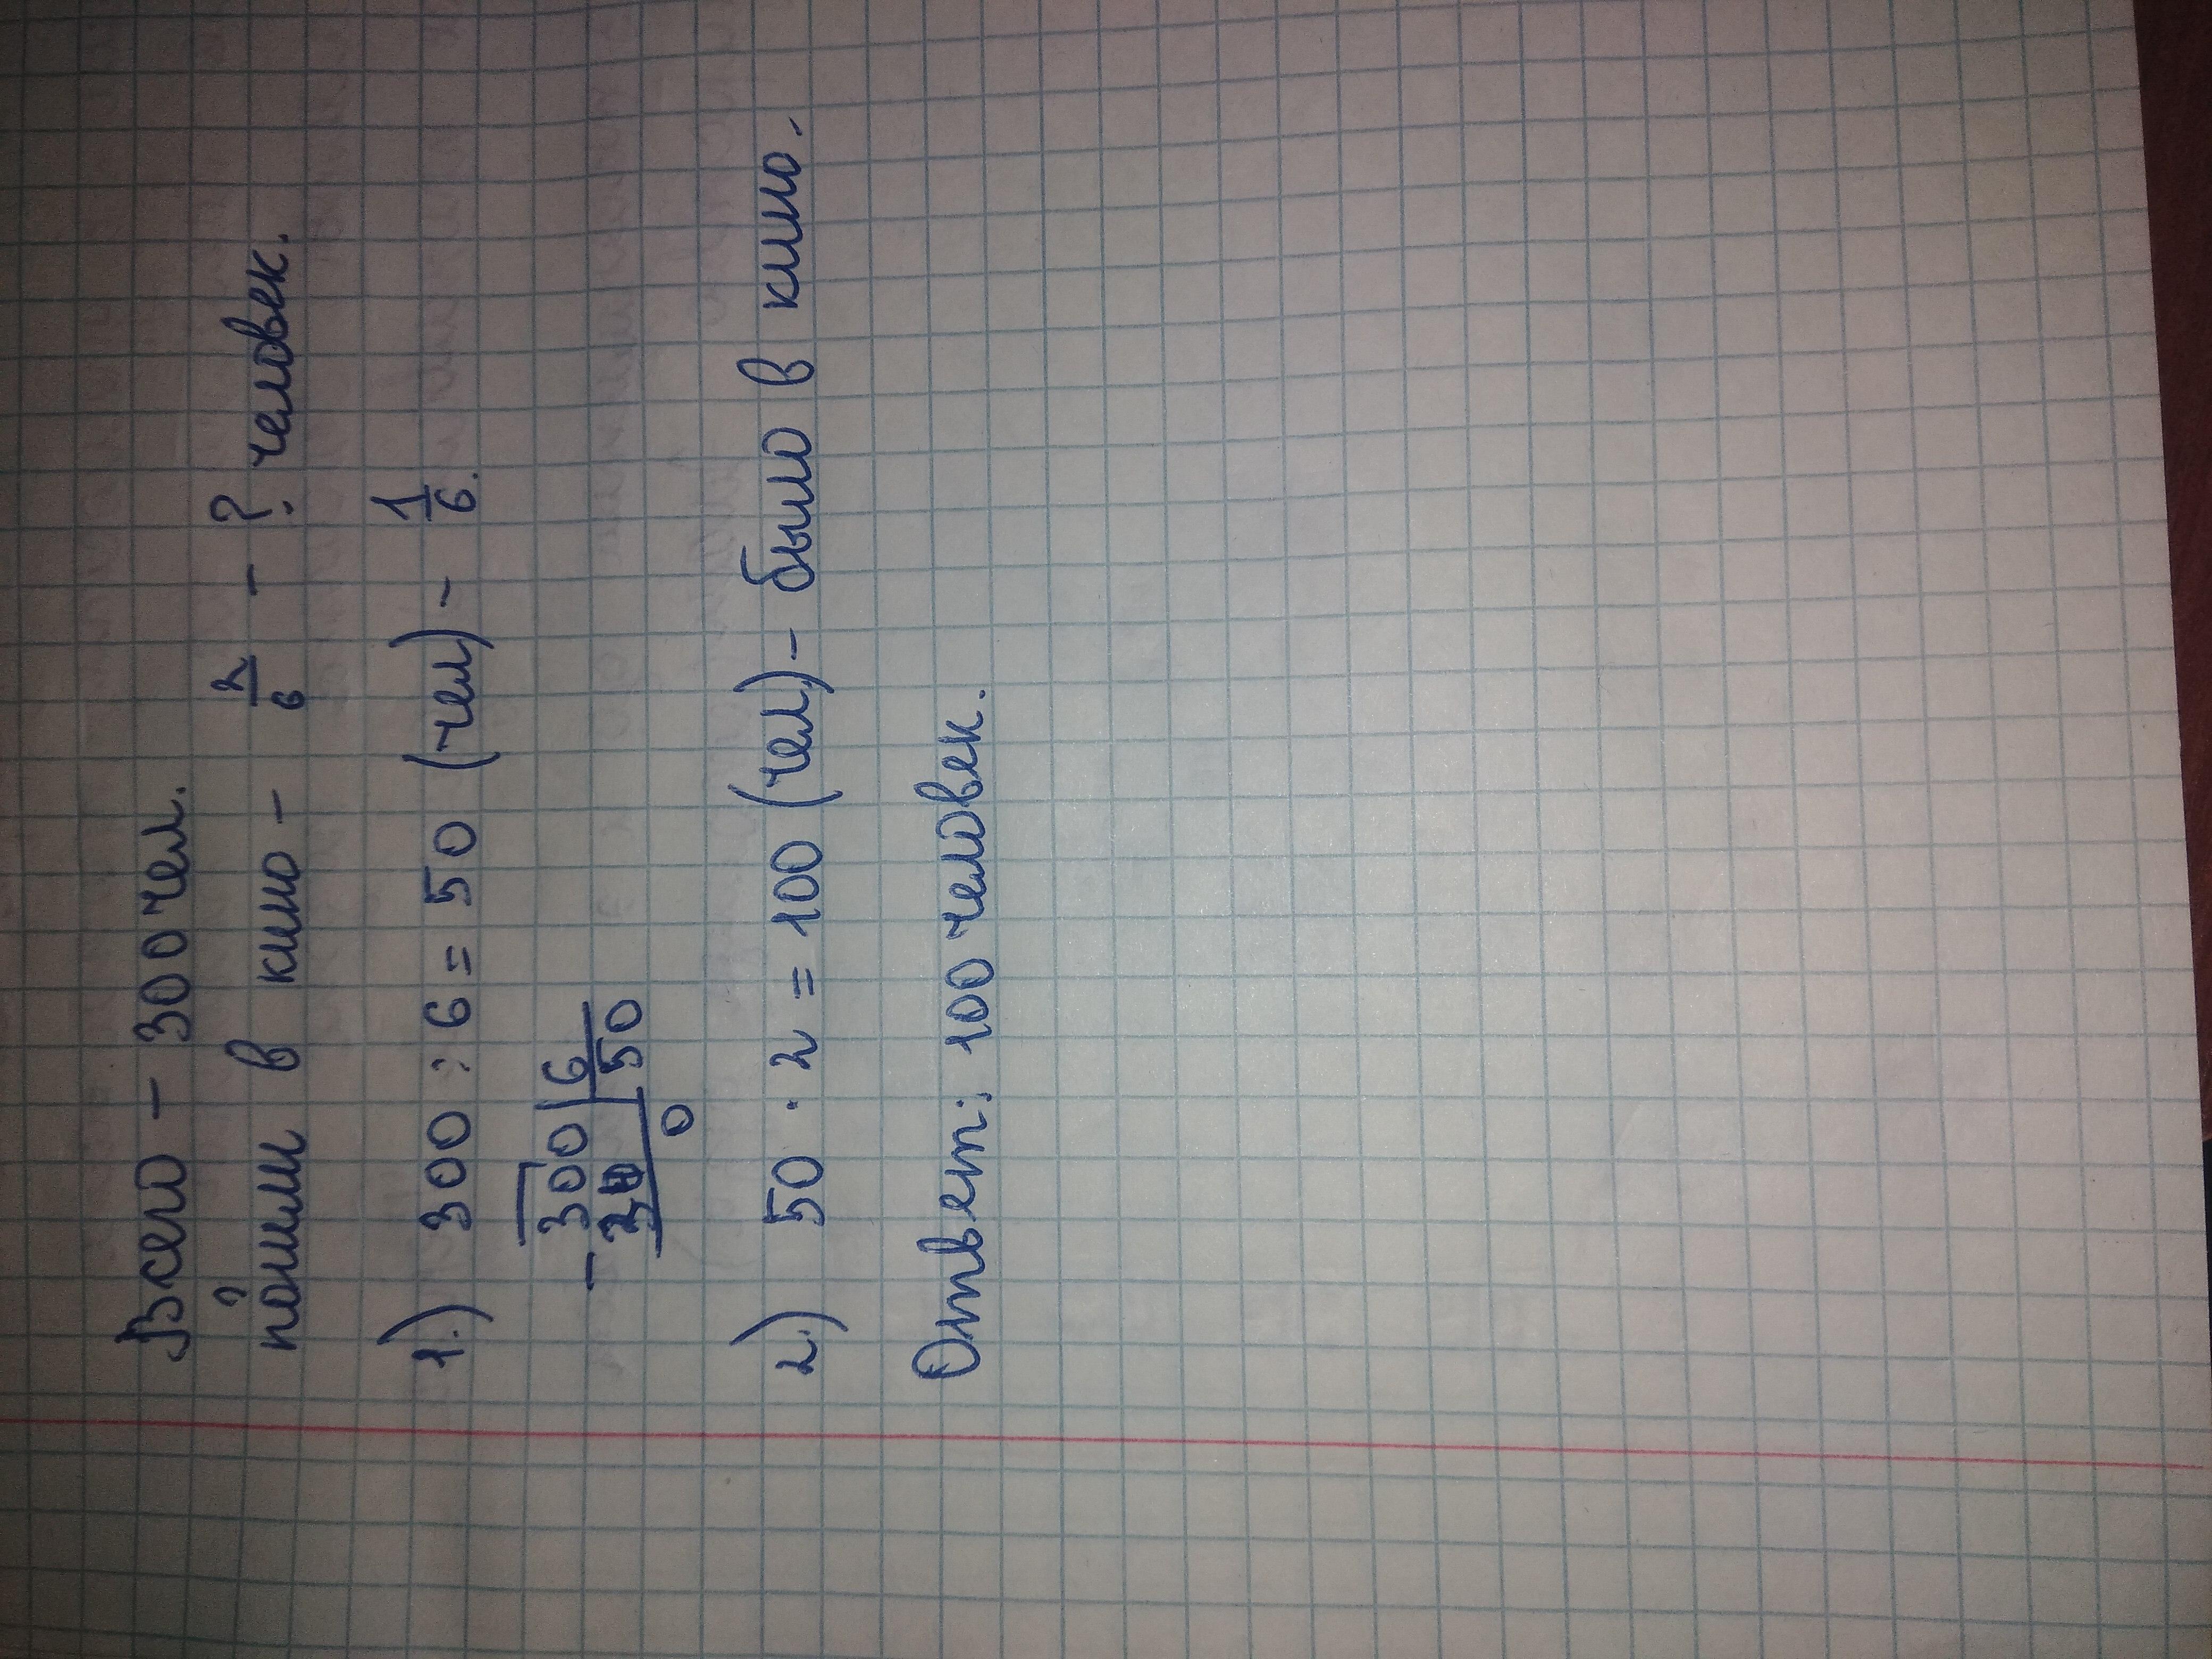 Всего – 300 чел.
пошли в кино – 2/6 – ? человек.
1.) 300 : 6 = 50 (чел) – 1/6.
– 300 | 6
30 | 50
0
2.) 50 · 2 = 100 (чел.) – было в кино.
Ответ: 100 человек.